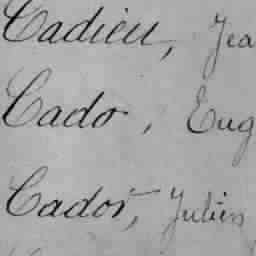 Cadieu, Jea
Cado, Eug
Cador, Julien